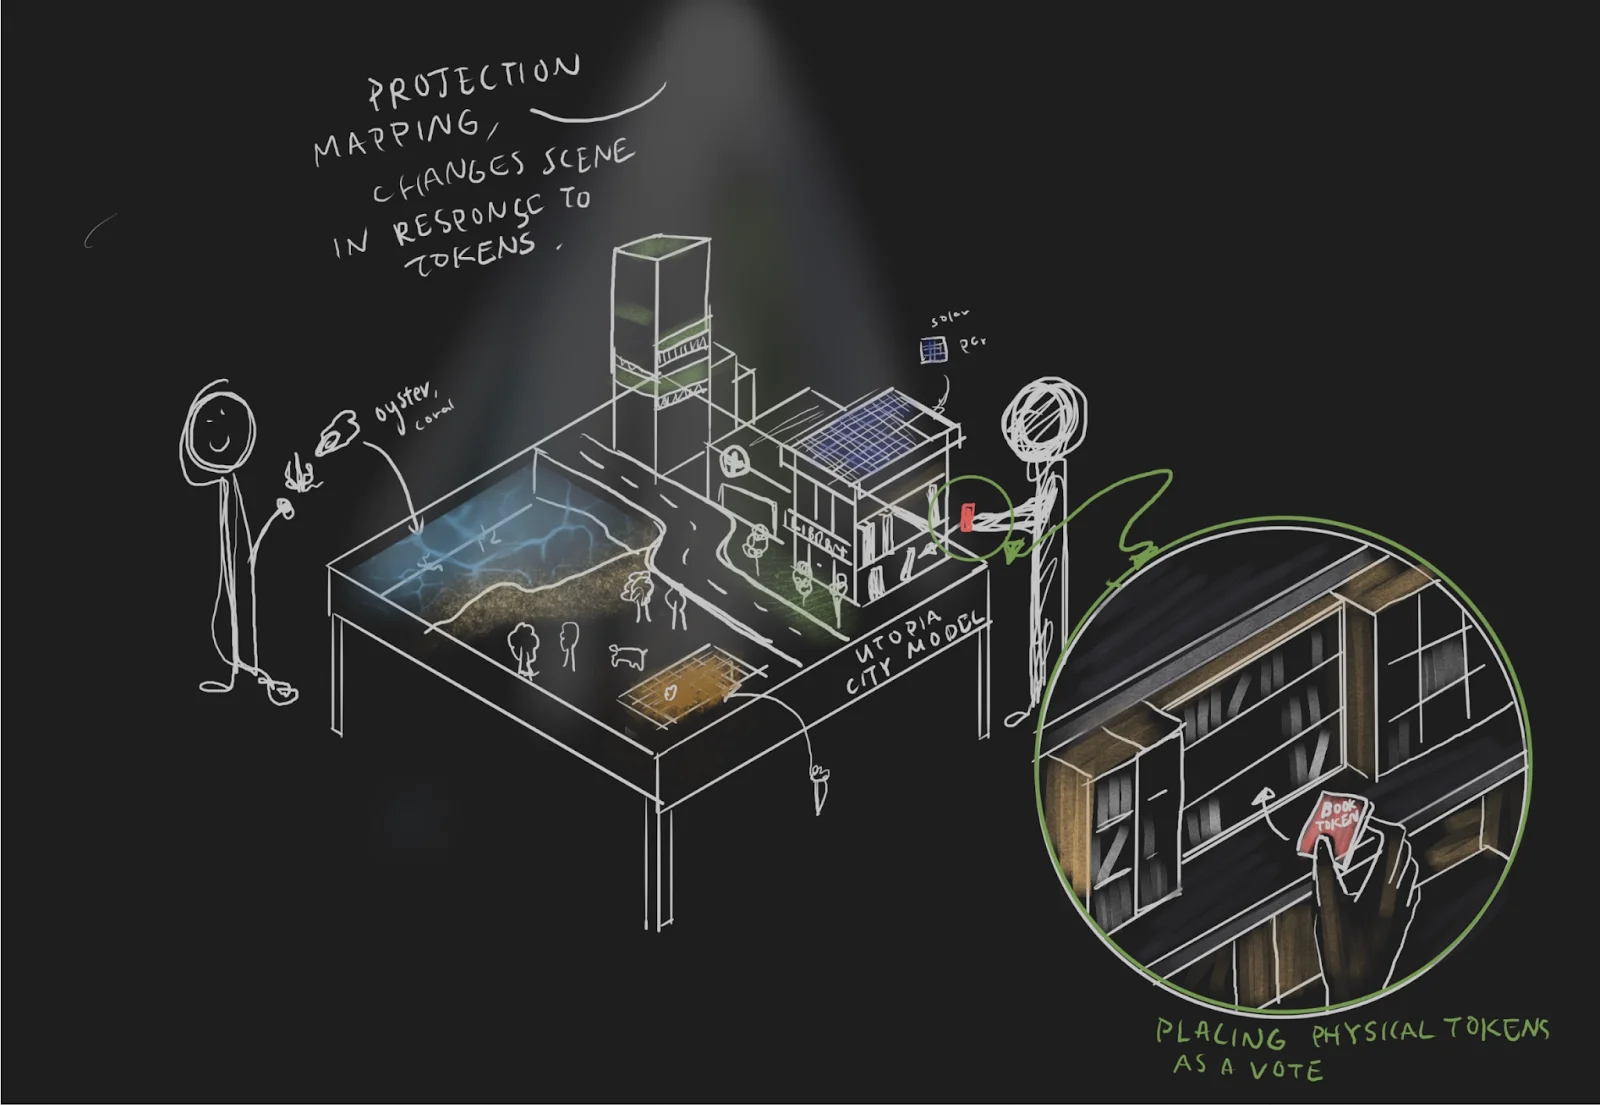 PROJECTION
MAPPING,
CHANGES SCENE
IN RESPONSE TO
TOKENS.
solar
oyster,
coral
UTOPIA
CITY MODEL
BOOK
TOKEN
PLACING PHYSICAL TOKENS
AS A VOTE